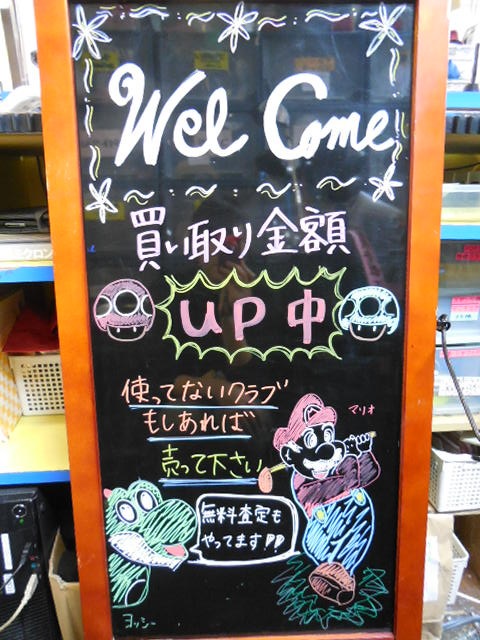 Wel Come
買い取り金額
UP中
使ってないクラブ
もしあれば
売って下さい
マリオ
M
無料査定も
やってます!!
ヨッシー
クロン